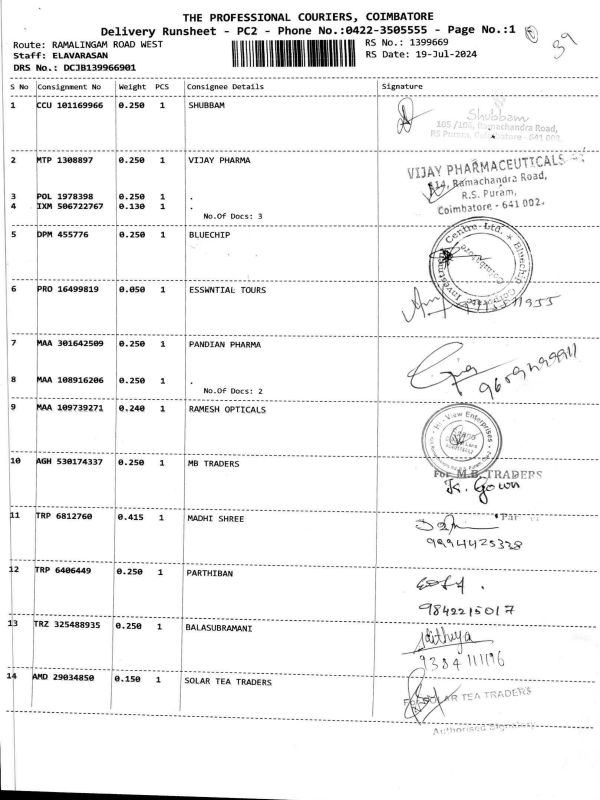 THE PROFESSIONAL COURIERS, COIMBATORE
Delivery Runsheet - PC2 - Phone No.:0422-3505555 - Page No.:1
39
Route: RAMALINGAM ROAD WEST
RS No.: 1399669
Staff: ELAVARASAN
RS Date: 19-Jul-2024
DRS No.: DCJB139966901
S No Consignment No Weight PCS Consignee Details Signature
1 CCU 101169966 0.250 1 SHUBBAM
Shubbam
105 /106, Ramachandra Road,
RS Puram, Coimbatore - 641 002.
2 MTP 1308897 0.250 1 VIJAY PHARMA
VIJAY PHARMACEUTICALS
Ramachandra Road,
R.S. Puram,
Coimbatore - 641 002.
3 POL 1978398 0.250 1 .
4 IXM 506722767 0.130 1 .
No.Of Docs: 3
5 DPM 455776 0.250 1 BLUECHIP
Bluechip Corporate Investment Centre Ltd.
Coimbatore
6 PRO 16499819 0.050 1 ESSWNTIAL TOURS
7 MAA 301642509 0.250 1 PANDIAN PHARMA
8 MAA 108916206 0.250 1 .
No.Of Docs: 2
9 MAA 109739271 0.240 1 RAMESH OPTICALS
Hi-View Enterprises
10 AGH 530174337 0.250 1 MB TRADERS
For M.B. TRADERS
11 TRP 6812760 0.415 1 MADHI SHREE
9994425328
12 TRP 6406449 0.250 1 PARTHIBAN
9842215017
13 TRZ 325488935 0.250 1 BALASUBRAMANI
9384111196
14 AMD 29034850 0.150 1 SOLAR TEA TRADERS
For SOLAR TEA TRADERS
Authorised Signatory